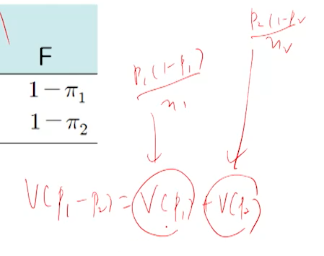 F
1−π₁
1−π₂
p₁(1-p₁)
n₁
p₂(1-p₂
n₂
V(p₁-p₂)=V(p₁)+V(p₂)